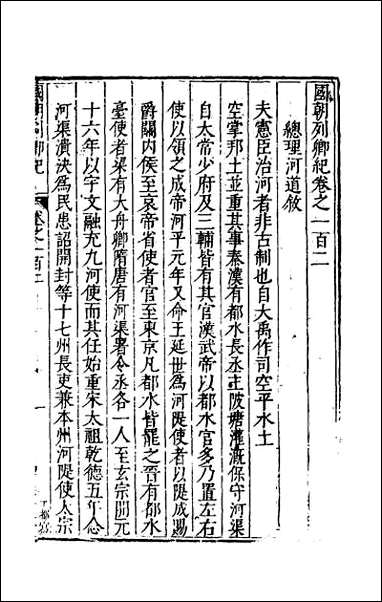 國朝列卿紀卷之一百二
總理河道敘
夫憲臣治河者非古制也自大禹作司空平水土
空掌邦土並重其事秦漢有都水長丞主陂塘灌溉保守河渠
自太常少府及三輔皆有其官漢武帝以都水官多乃置左右
使以領之成帝河平元年又命王延世為河隄使者以隄成賜
爵關內侯至哀帝省使者官至東京凡都水皆罷之晉有都水
臺使者梁有大舟卿隋唐有河渠署令丞各一人至玄宗開元
十六年以宇文融充九河使而其任始重宋太祖乾德五年
河渠潰決為民患詔開封等十七州長吏兼本州河隄使太宗
國朝列卿紀
卷之一百二
一